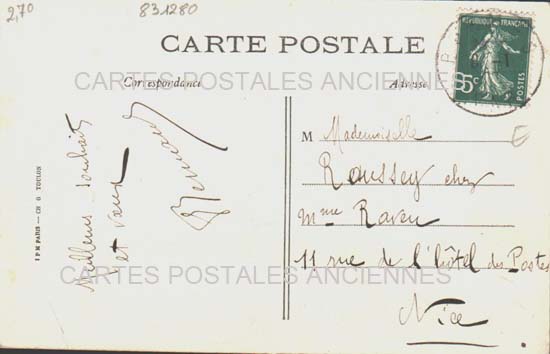 2,70
831280
CARTE POSTALE
Correspondance
Adresse
REPUBLIQUE FRANÇAISE
5c
POSTES
CARTES POSTALES ANCIENNES
Meilleurs souhaits
et vœux
M Mademoiselle
Roussey chez
Mme Raven
11 rue de l'hôtel des Postes
Nice
I P M PARIS — CH G TOULON
CARTES POSTALES ANCIENNES